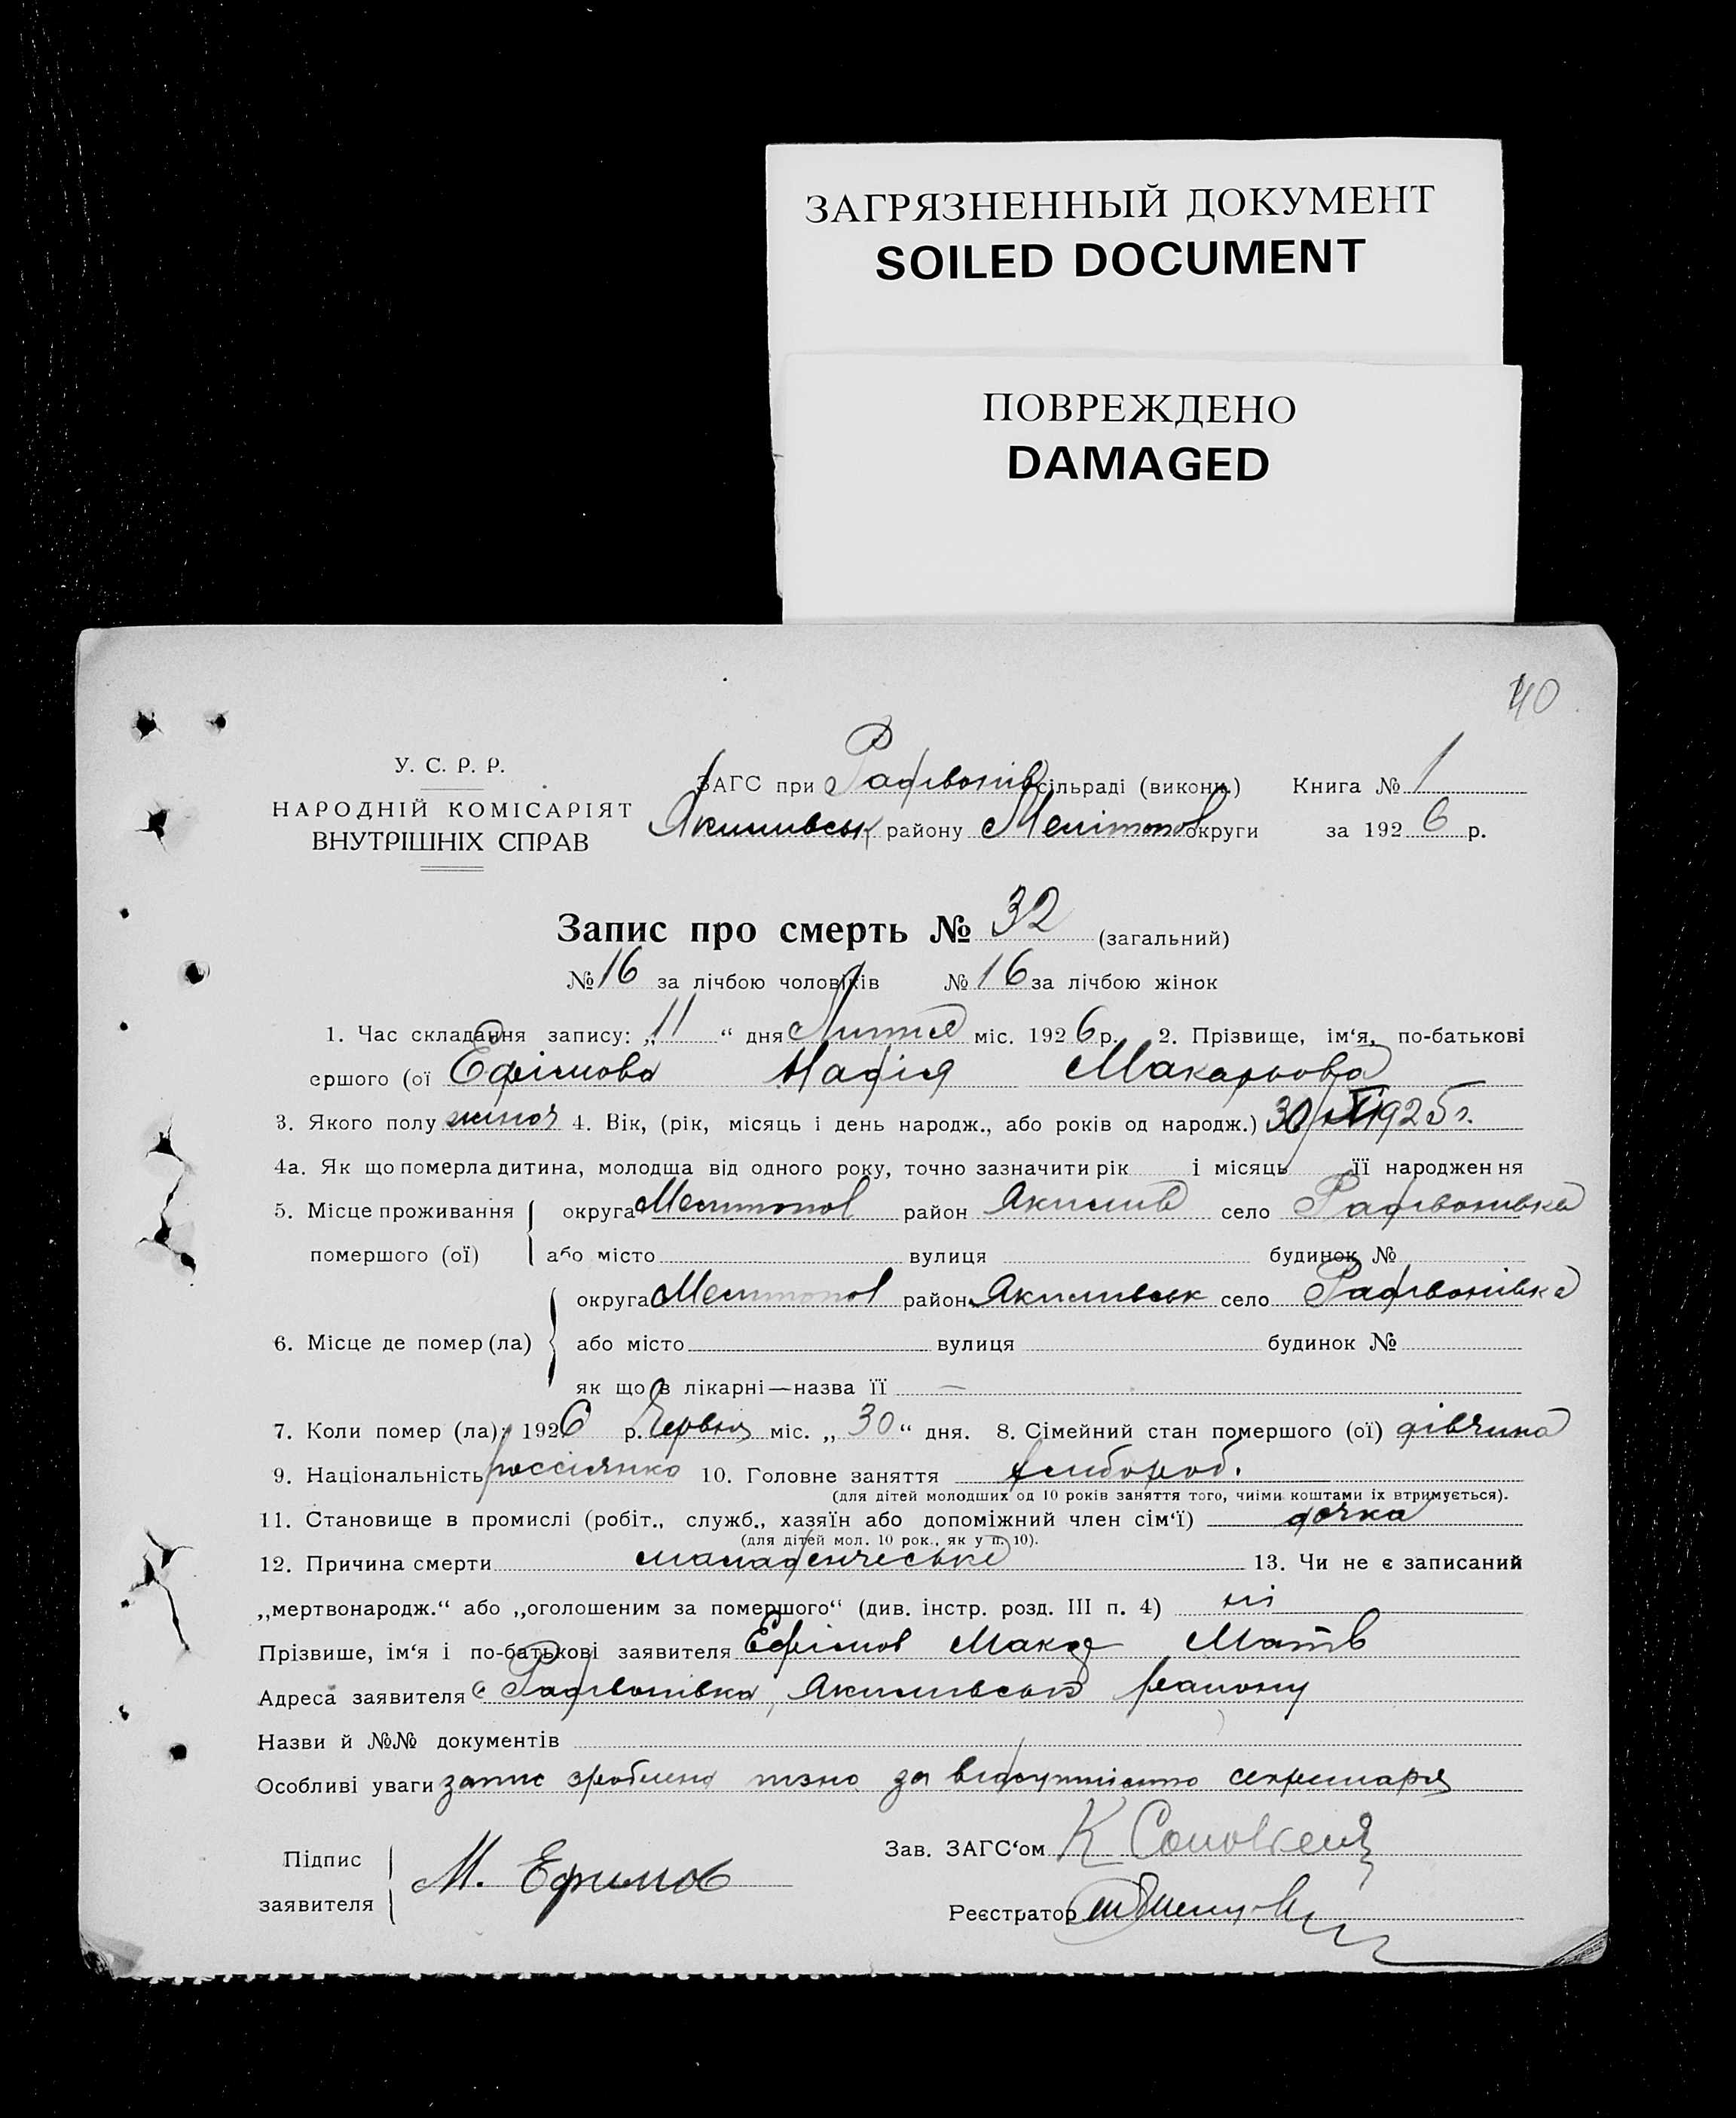 ЗАГРЯЗНЕННЫЙ ДОКУМЕНТ
SOILED DOCUMENT
ПОВРЕЖДЕНО
DAMAGED
40
У. С. Р. Р.
НАРОДНІЙ КОМІСАРІЯТ
ВНУТРІШНІХ СПРАВ
ЗАГС при Радівонів сільраді (викони.) Книга № 1
Якимивськ району Мелітопол округи за 1926 р.
Запис про смерть № 32 (загальний)
№ 16 за лічбою чоловіків № 16 за лічбою жінок
1. Час складання запису: „11“ дня Липня міс. 1926 р. 2. Прізвище, ім‘я, по-батькові
ершого (ої Ефімова Надія Макарьова
3. Якого полу жіноч 4. Вік, (рік, місяць і день народж., або років од народж.) 30/XI 1925 г.
4а. Як що померла дитина, молодща від одного року, точно зазначити рік і місяць її народження
5. Місце проживання округа Мелитопол район Якимив село Радивонивка
помершого (ої) або місто вулиця будинок №
округа Мелитопол район Якимивськ село Радивонівка
6. Місце де помер (ла) або місто вулиця будинок №
як що в лікарні—назва її —
7. Коли помер (ла): 1926 р. Червня міс. „30“ дня. 8. Сімейний стан помершого (ої) дівчина
9. Національність россіянка 10. Головне заняття хлибороб.
(для дітей молодших од 10 років заняття того, чиїми коштами їх втримується).
11. Становище в промислі (робіт., служб., хазяїн або допоміжний член сім‘ї) дочка
(для дітей мол. 10 рок., як у п. 10).
12. Причина смерти 13. Чи не є записаний
„мертвонародж.“ або „оголошеним за помершого“ (див. інстр. розд. III п. 4) ні
Прізвише, ім‘я і по-батькові заявителя Ефімов Матв
Адреса заявителя с Радивонівка, Якимивськ району
Назви й №№ документів
Особливі уваги запис зроблено пізно за відсутністю секретаря
Підпис заявителя М. Ефимов
Зав. ЗАГС‘ом К
Реєстратор